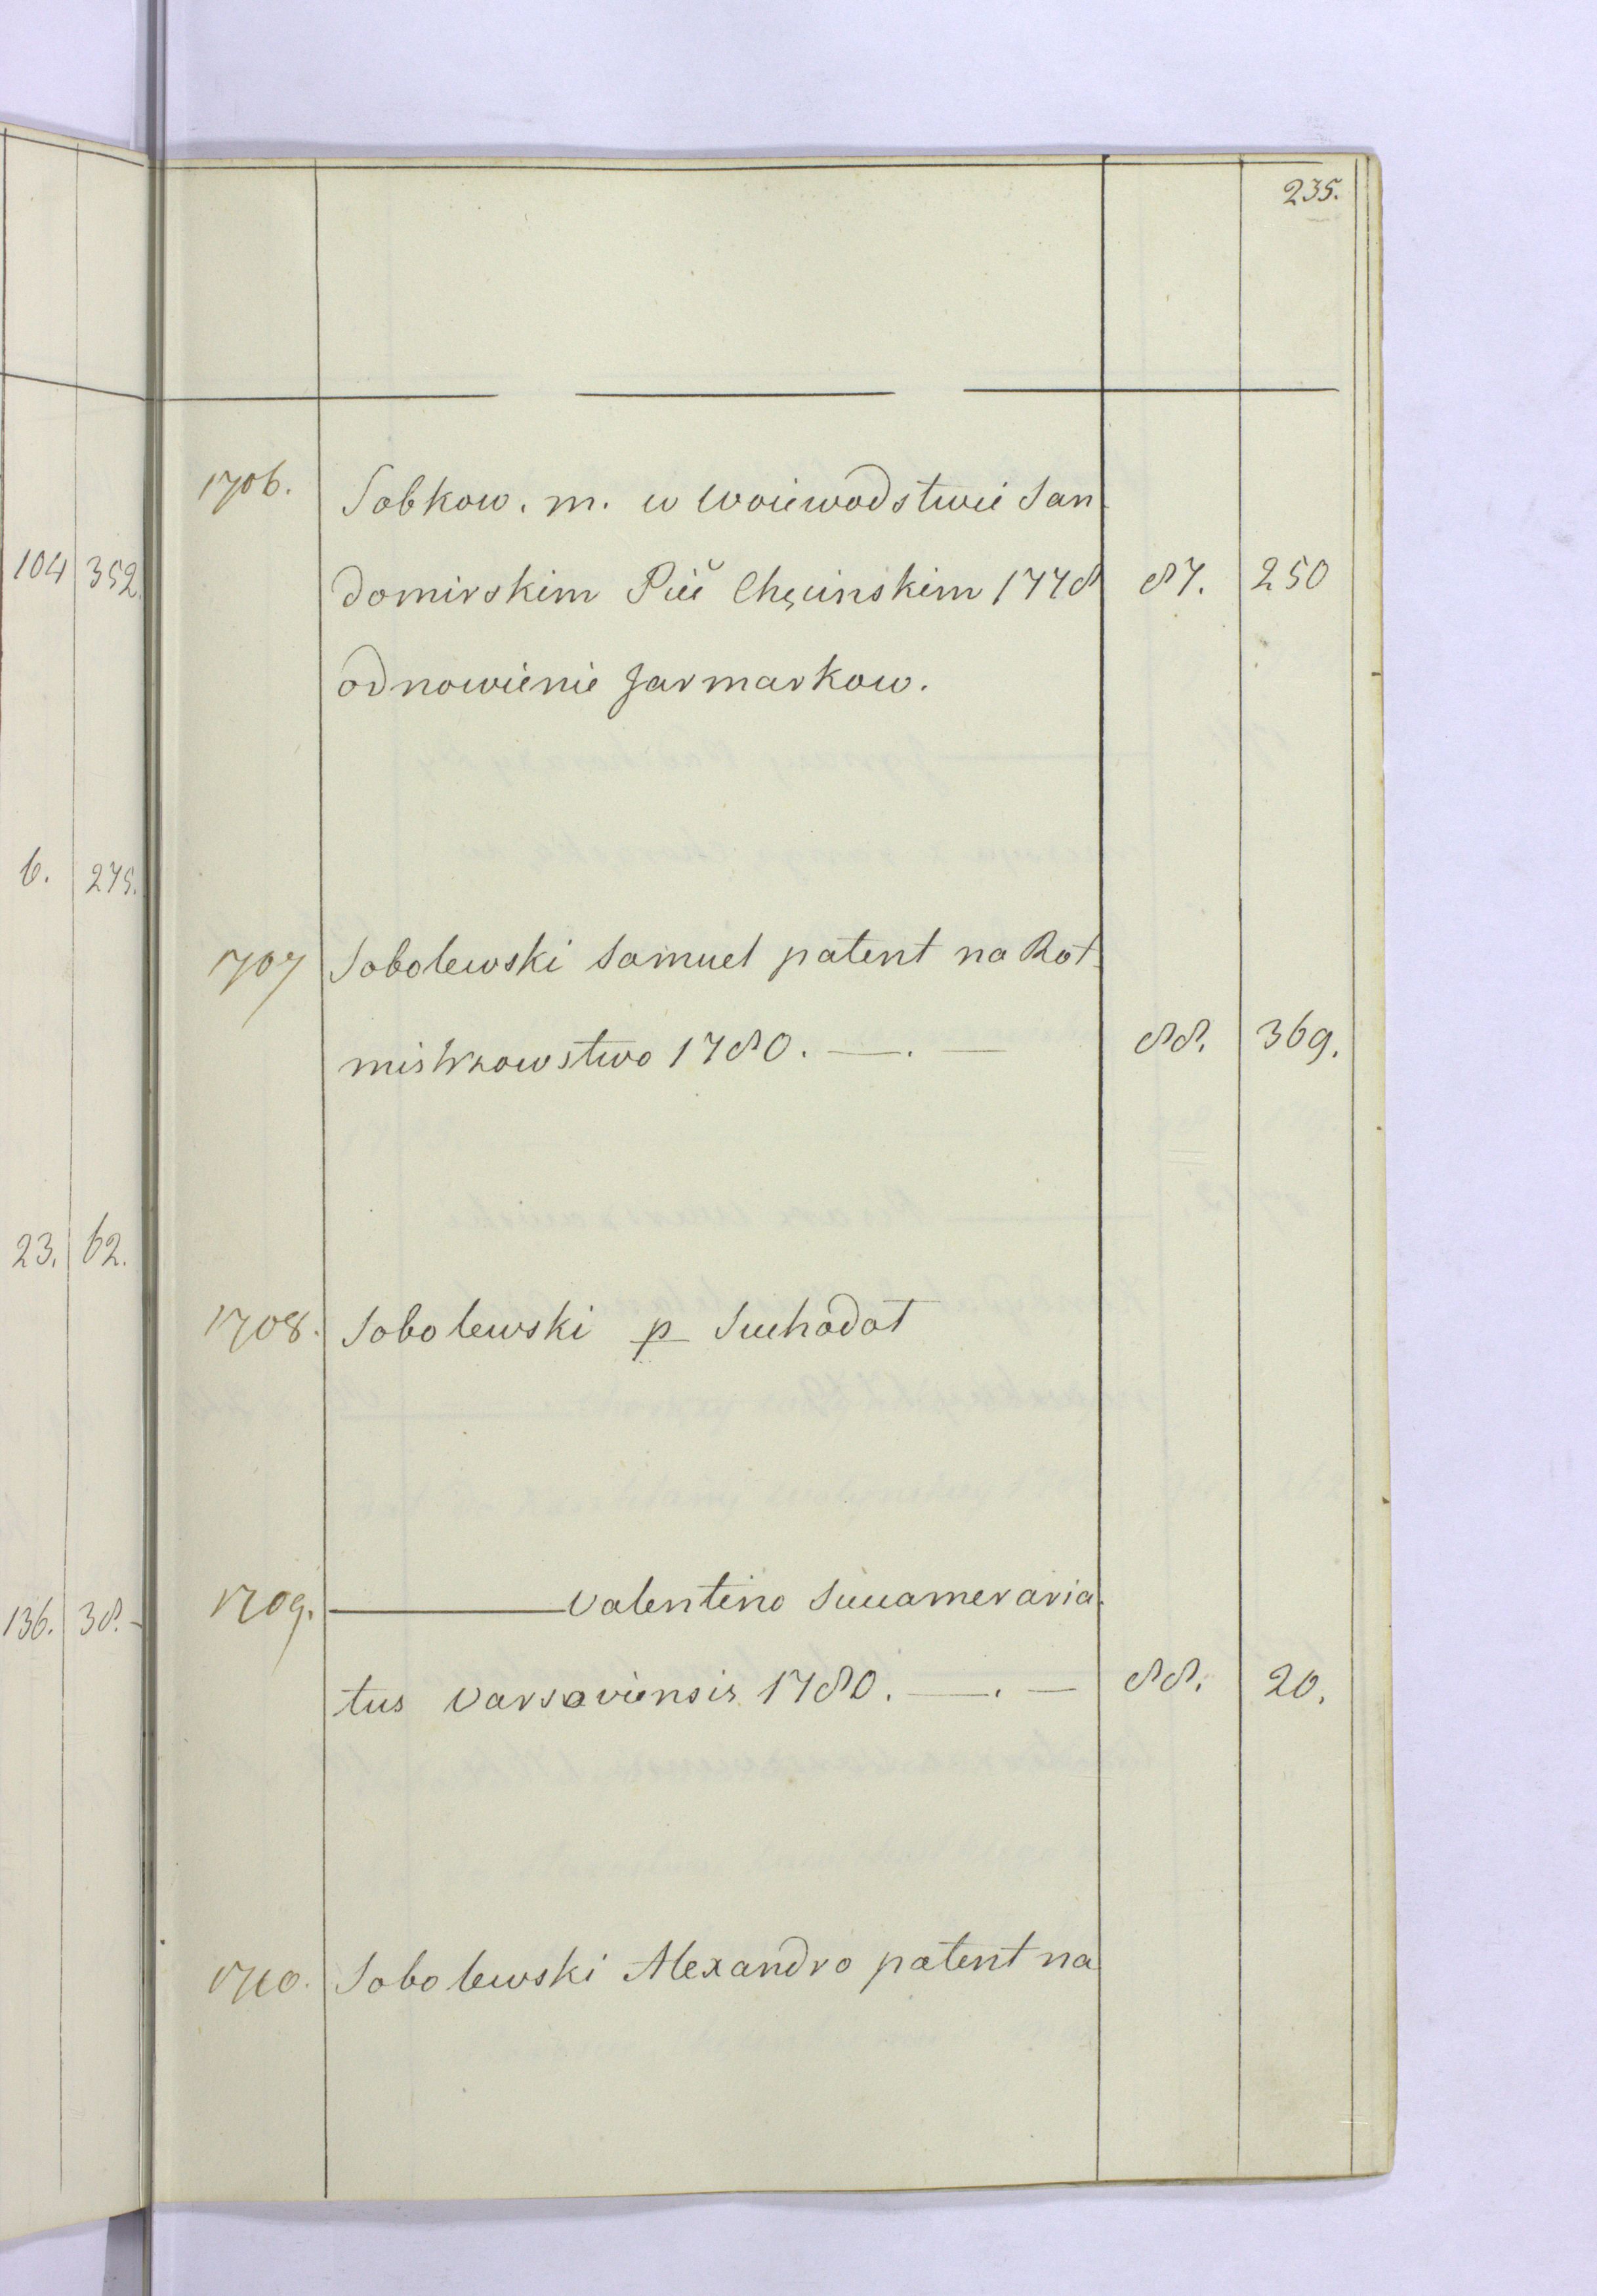 235.
1706. Sobkow. m. w Woiewodstwie San
domirskim Pić Chęcinskim 1778 87. 250
odnowienie Jarmarkow.
1707 Sobolewski Samuel patent na Rot
mistrzowstwo 1780. —. — 88. 369.
1708. Sobolewski p Suchodoł
1709. ——— Valentino Succameraria
tus Varsaviensis 1780. —. — 88. 20.
1710. Sobolewski Alexandro patent na
104 352.
6. 275.
23. 62.
136. 38.